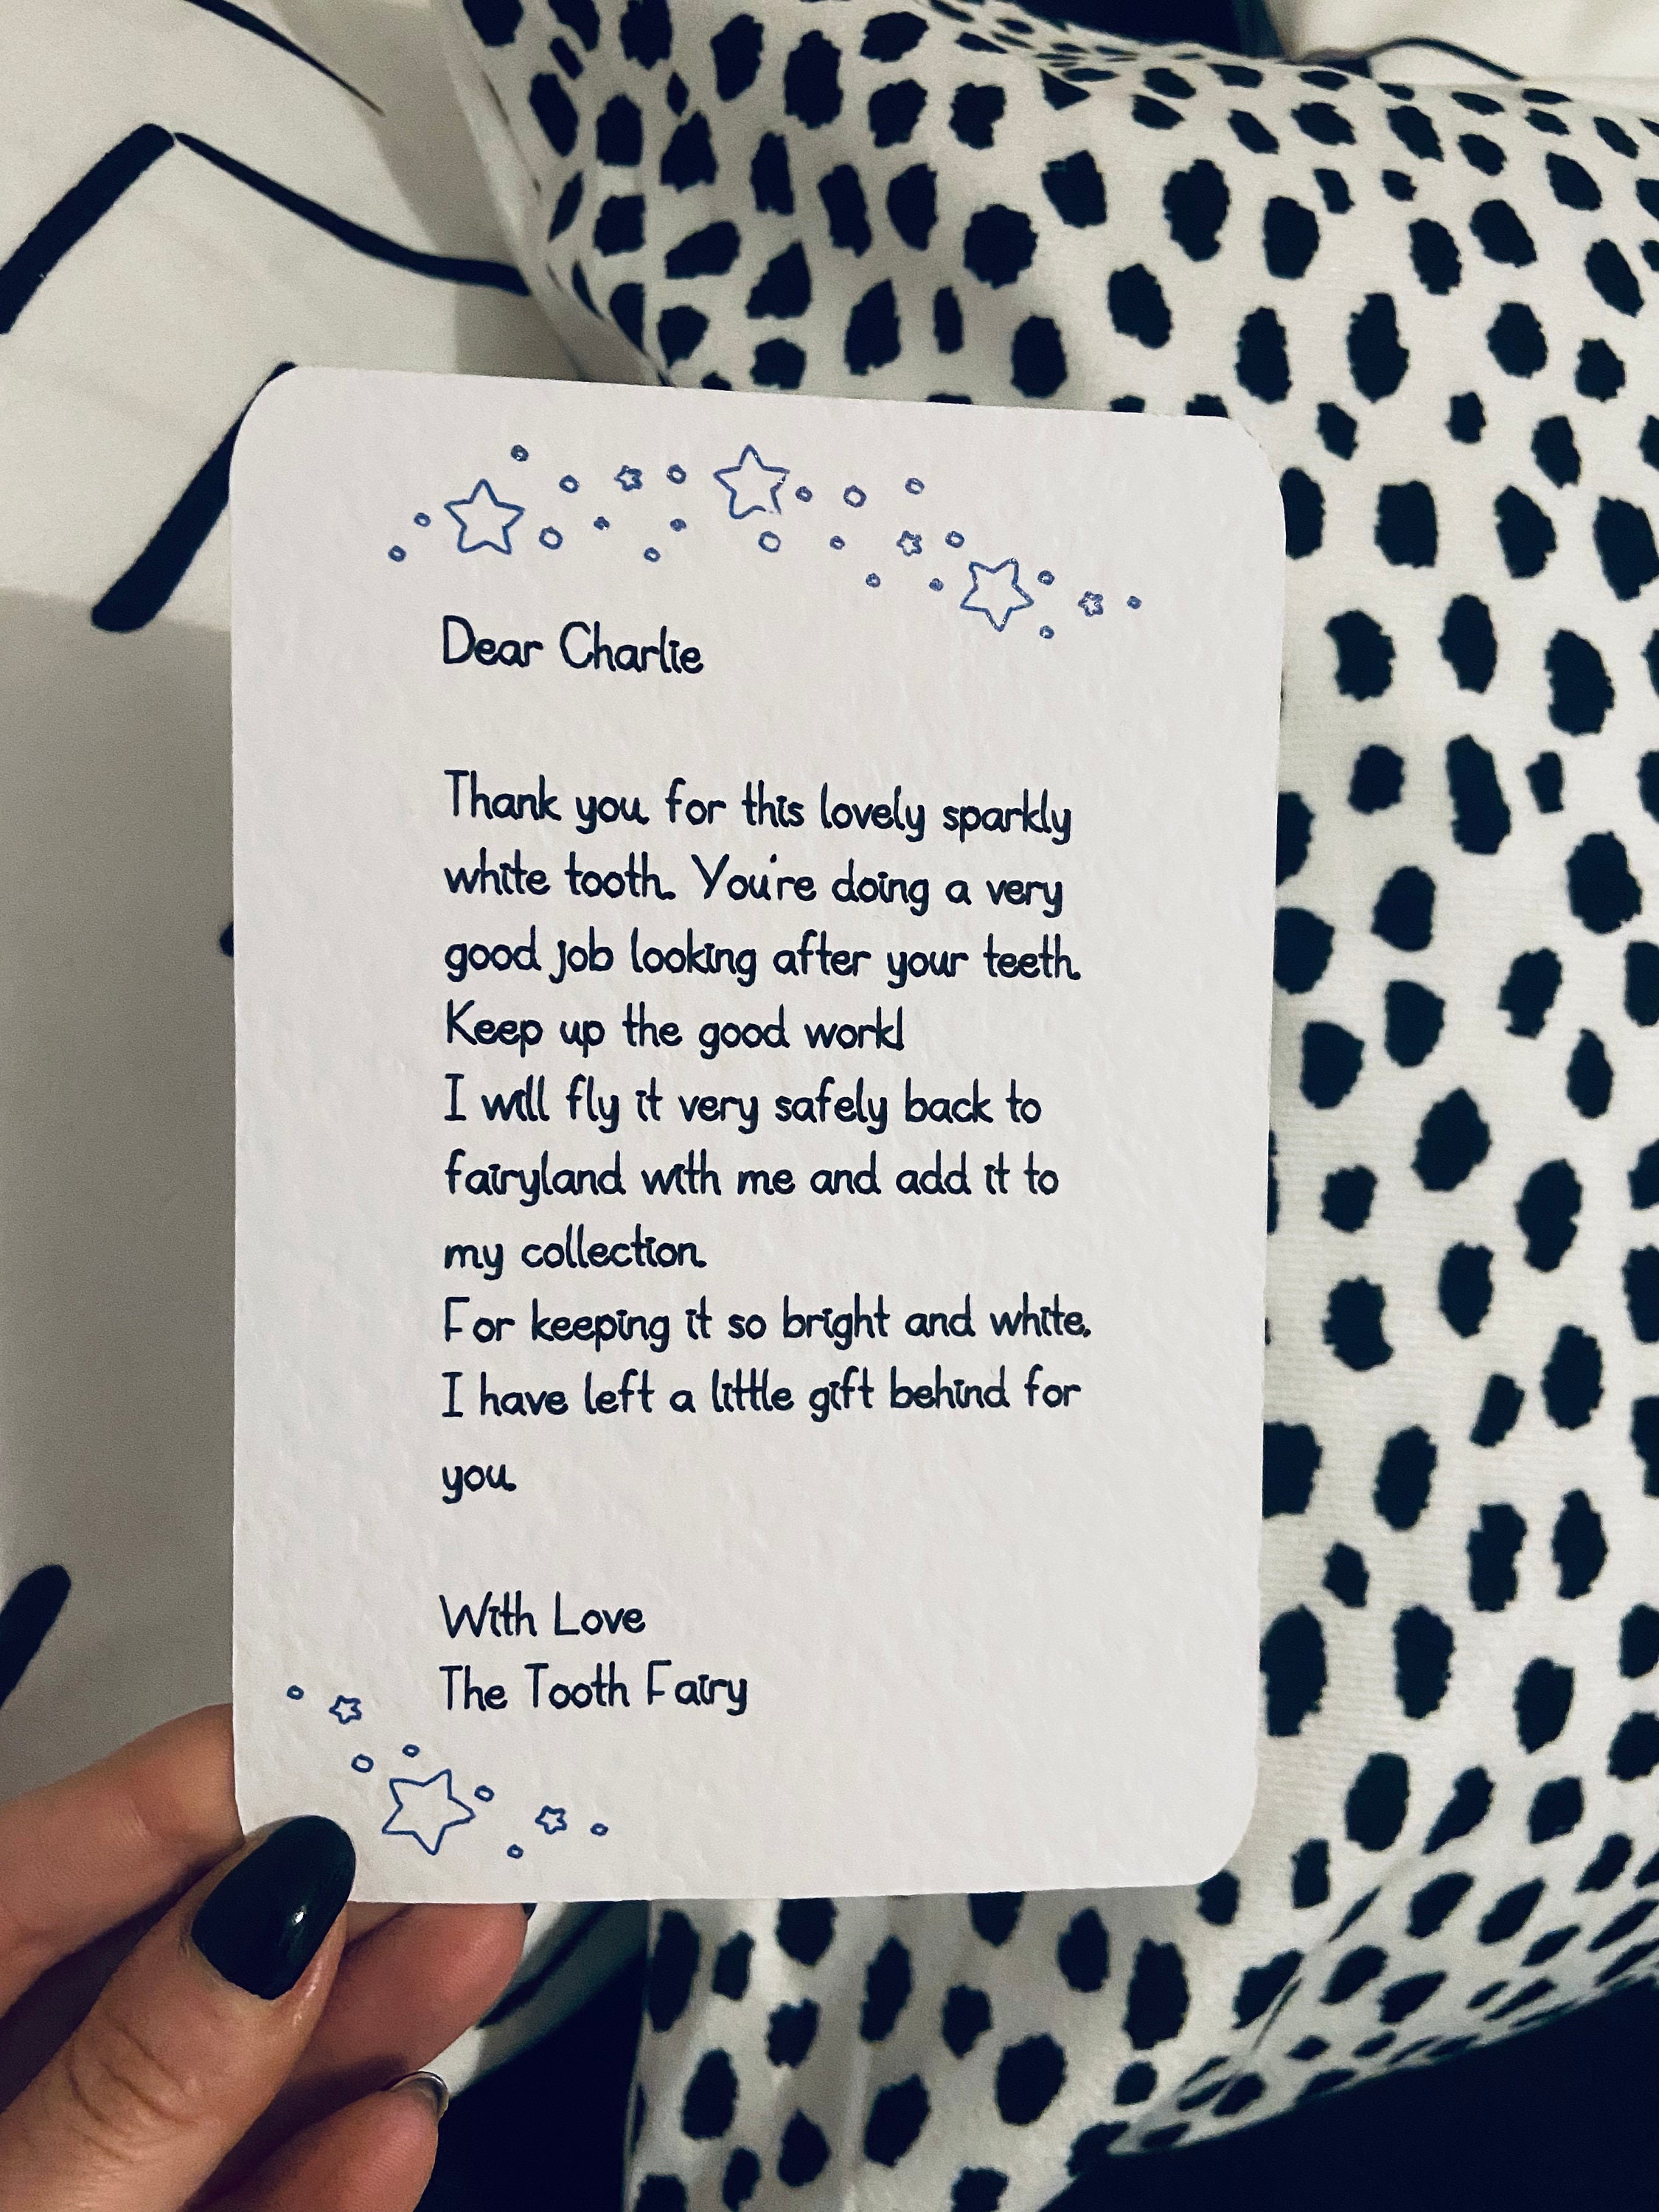 Dear Charlie
Thank you for this lovely sparkly
white tooth. You're doing a very
good job looking after your teeth.
Keep up the good work!
I will fly it very safely back to
fairyland with me and add it to
my collection.
For keeping it so bright and white,
I have left a little gift behind for
you.
With Love
The Tooth Fairy